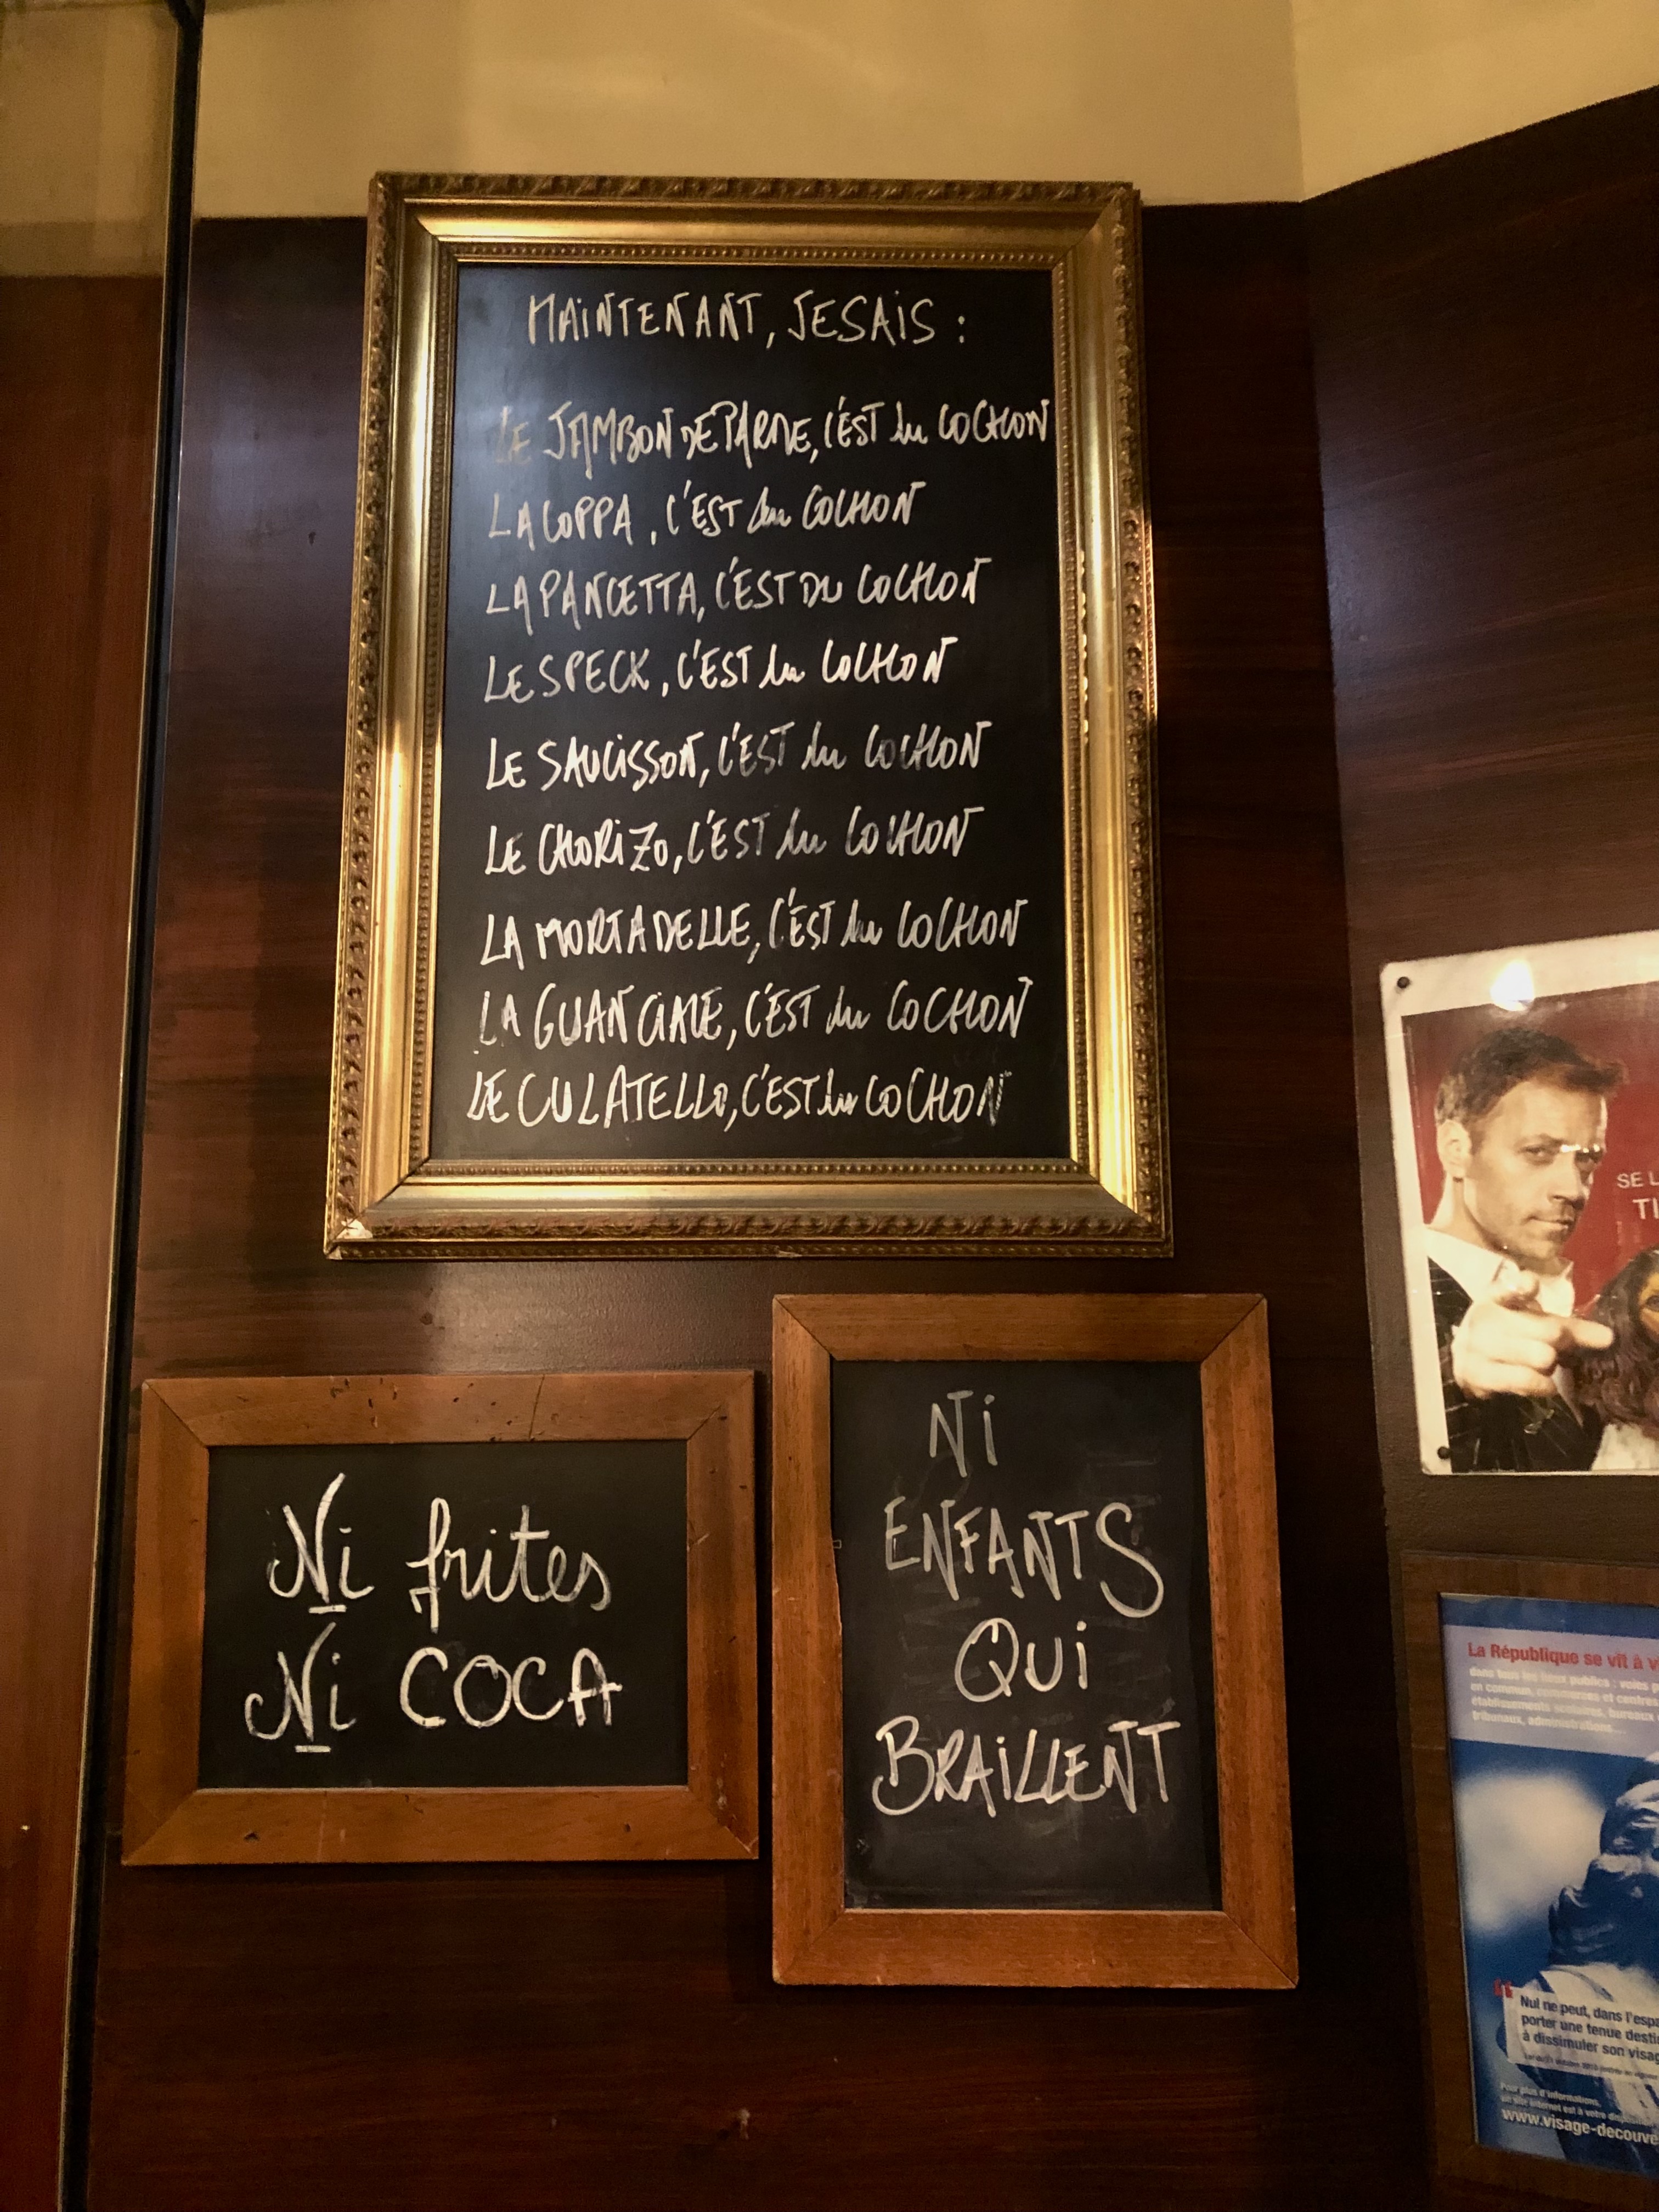 MAINTENANT, JE SAIS :
LE JAMBON DE PARME, C'EST du COCHON
LA COPPA, C'EST du COCHON
LA PANCETTA, C'EST DU COCHON
LE SPECK, C'EST du COCHON
LE SAUCISSON, C'EST du COCHON
LE CHORIZO, C'EST du COCHON
LA MORTADELLE, C'EST du COCHON
LA GUANCIALE, C'EST du COCHON
LE CULATELLO, C'EST du COCHON
Ni frites
Ni COCA
Ni
ENFANTS
QUi
BRAiLLENT
SE L
TI
La République se vit à v
dans tous les lieux publics : voies p
en commun, commerces et centres
établissements scolaires, bureaux
tribunaux, administrations...
"Nul ne peut, dans l'espa
porter une tenue desti
à dissimuler son visag
Pour plus d'informations,
un site internet est à votre
www.visage-decouve